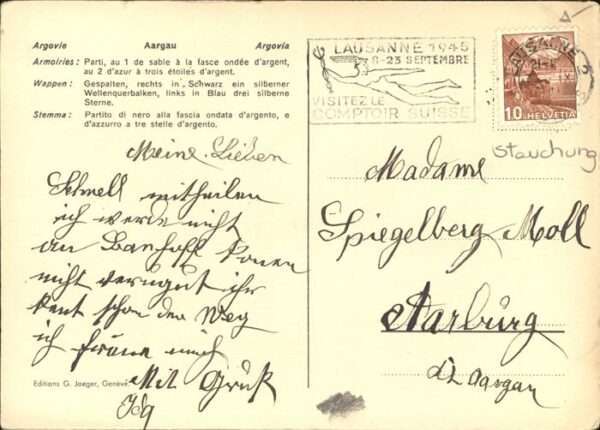 Argovie Aargau Argovia
Armoiries: Parti, au 1 de sable à la fasce ondée d'argent,
au 2 d'azur à trois étoiles d'argent.
Wappen: Gespalten, rechts in Schwarz ein silberner
Wellenquerbalken, links in Blau drei silberne
Sterne.
Stemma: Partito di nero alla fascia ondata d'argento, e
d'azzurro a tre stelle d'argento.
LAUSANNE 1945
8-23 SEPTEMBRE
VISITEZ LE
COMPTOIR SUISSE
LAUSANNE
10 HELVETIA
Stauchung
Meine Lieben
Schnell mitheilen
ich werde nicht
an Banhoff konen
nicht ihr
kent schon den Weg
ich fräue mich
Mit Gruß
Ida
Editions G. Jaeger, Genève
Madame
Spiegelberg Moll
Aarburg
Aargau